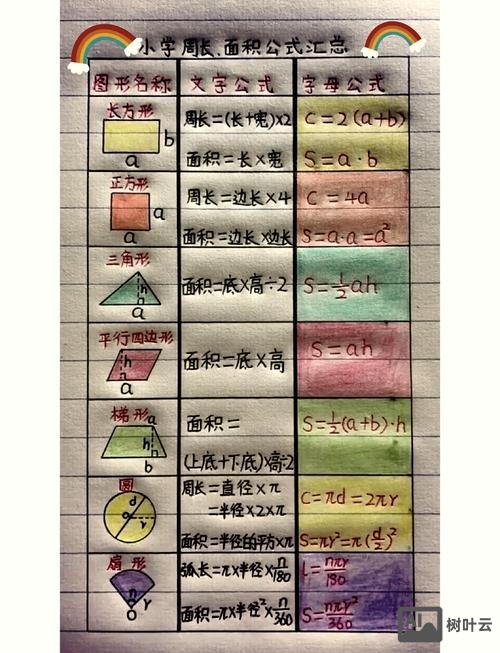 小学周长、面积公式汇总
图形名称 文字公式 字母公式
长方形
b
a
周长=(长+宽)×2
面积=长×宽
C=2(a+b)
S=a·b
正方形
a
a
周长=边长×4
面积=边长×边长
C=4a
S=a·a=a²
三角形
h
a
面积=底×高÷2
S=½ah
平行四边形
h
a
面积=底×高
S=ah
梯形
a
h
b
面积=
(上底+下底)×高÷2
S=½(a+b)·h
圆
d
r
周长=直径×π
=半径×2×π
面积=半径的平方×π
C=πd=2πr
S=πr²=π(d/2)²
扇形
n
r
O
弧长=π×半径×n/180
面积=π×半径²×n/360
l=nπr/180
S=nπr²/360
树叶云